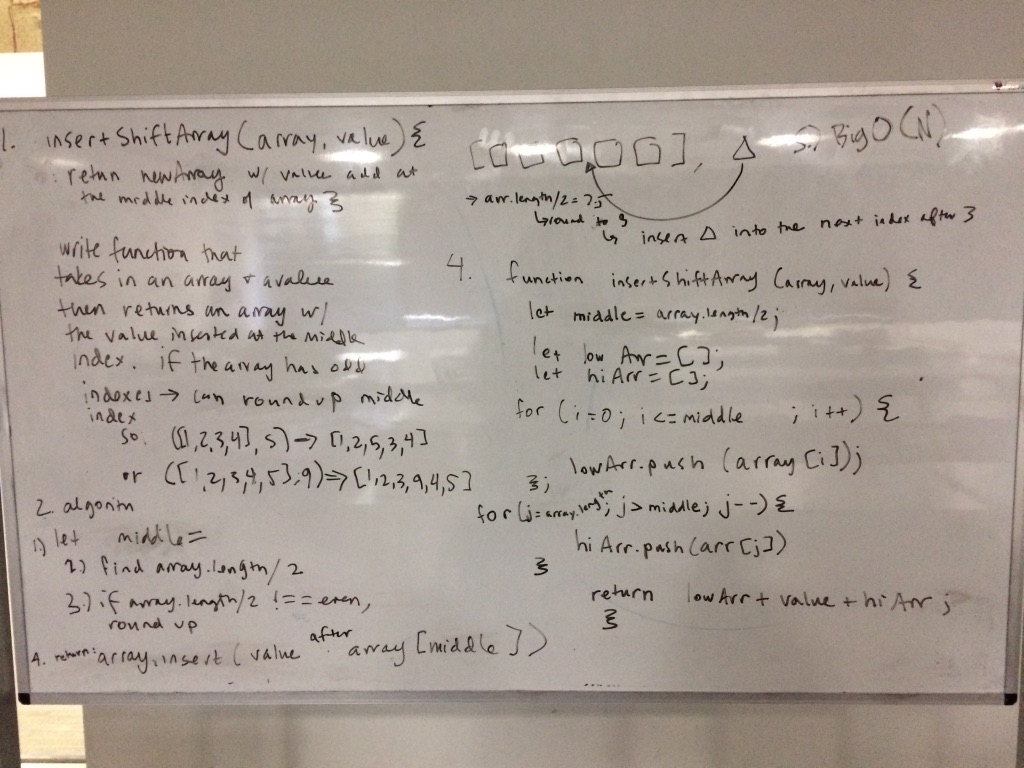 1. insertShiftArray(array, value){
: retun newArray w/ value add at
the middle index of array }
write function that
takes in an array + a value
then returns an array w/
the value inserted at the middle
index. if the array has odd
indexes → can round up middle
index
So. ([1,2,3,4], 5) → [1,2,5,3,4]
or ([1,2,3,4,5],9) ⇒ [1,2,3,9,4,5]
2. algorithm
1) let middle =
2) find array.length/2
3.) if array.length/2 !== even,
round up
4. return: array.insert(value after array[middle])
[□ □ □ □ □], △
→ arr.length/2 =
↳ round to 3
↳ insert △ into the next index after 3
5.) Big O (N)
4. function insertShiftArray (array, value) {
let middle = array.length/2;
let lowArr = [];
let hiArr = [];
for (i=0; i<=middle ; i++) {
lowArr.push (array[i]);
};
for (j=array.length; j>middle; j--) {
hiArr.push(arr[j])
}
return lowArr + value + hiArr;
}